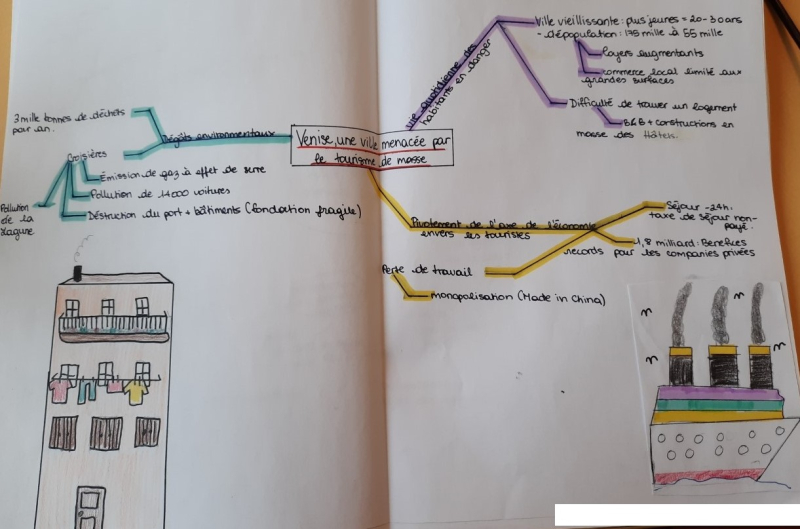 Venise, une ville menacée par
le tourisme de masse
vie quotidienne des
habitants en danger
Ville vieillissante: plus jeunes = 20-30 ans
- dépopulation: 175 mille à 55 mille
loyers augmentants
commerce local limité aux
grandes surfaces
Difficulté de trouver un logement
B&B + constructions en
masse des Hôtels.
Dégâts environmentaux
3 mille tonnes de déchêts
par an.
Croisières
Émission de gaz à effet de serre
Pollution de 14000 voitures
Déstruction du port + bâtiments (fondation fragile)
Pollution
de la
lagune
de l'axe de l'économie
envers les touristes
Séjour -24h.
taxe de séjour non-
payé.
milliard: Benefices
records pour les companies privées
Perte de travail
monopolisation (Made in China)